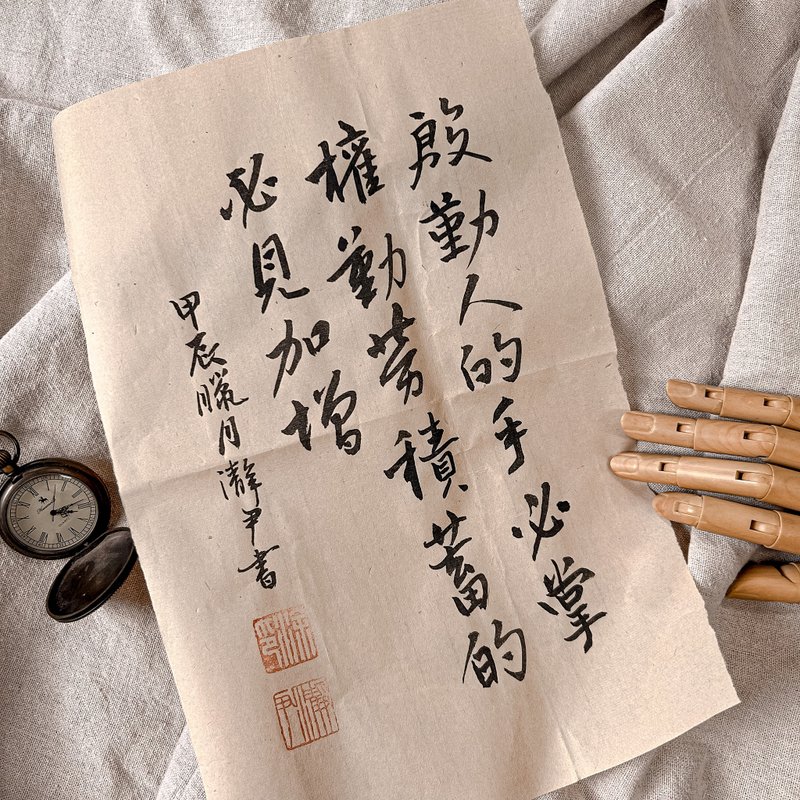 殷勤人的手必掌
權勤勞積蓄的
必見加增
甲辰臘月瀞尹書